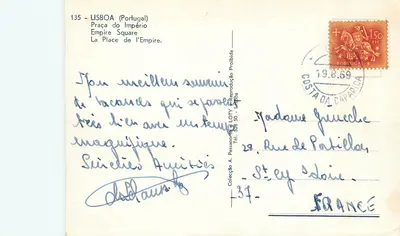 135 - LISBOA (Portugal)
Praça do Império
Empire Square
La Place de l'Empire.
1$50
19.8.69
COSTA DA CAPARICA
Mon meilleur souvenir
de vacances qui se passent
très bien avec un temps
magnifique.
Sincères Amitiés
Colecção A. Passaporte
Reprodução Proibida
Madame
Rue de
St
37-
FRANCE